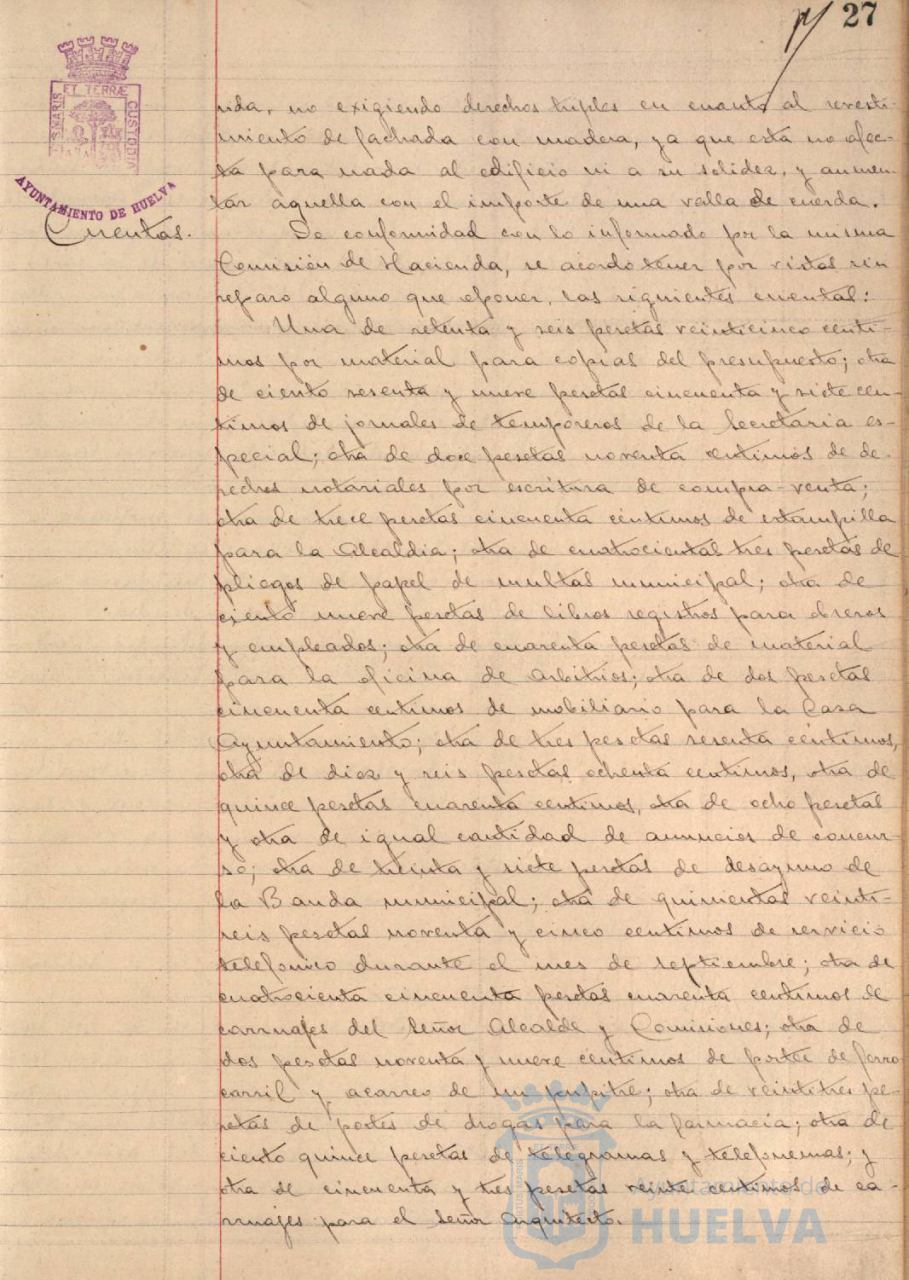 27
PORTUS MARIS ET TERRÆ CUSTODIA
AYUNTAMIENTO DE HUELVA
nda, no exigiendo derechos triples en cuanto al revesti-
miento de fachada con madera, ya que esta no afec-
ta para nada al edificio ni a su solidez, y aumen-
tar aquella con el importe de una valla de cuerda.
Cuentas.
De conformidad con lo informado por la misma
Comisión de Hacienda, se acordo tener por vistas sin
reparo alguno que oponer, las siguientes cuentas:
Una de setenta y seis pesetas veinticinco centi-
mos por material para copias del presupuesto; otra
de ciento sesenta y nueve pesetas cincuenta y siete cen-
timos de jornales de temporeros de la Secretaria es-
pecial; otra de doce pesetas noventa centimos de de-
rechos notariales por escritura de compra-venta;
otra de trece pesetas cincuenta céntimos de estampilla
para la Alcaldia; otra de cuatrocientas tres pesetas de
pliegos de papel de multas municipal; otra de
ciento nueve pesetas de libros registros para obreros
y empleados; otra de cuarenta pesetas de material
para la oficina de Arbitrios; otra de dos pesetas
cincuenta centimos de mobiliario para la Casa
Ayuntamiento; otra de tres pesetas sesenta céntimos,
otra de diez y seis pesetas ochenta centimos, otra de
quince pesetas cuarenta centimos, otra de ocho pesetas
y otra de igual cantidad de anuncios de concur-
so; otra de treinta y siete pesetas de desayuno de
la Banda municipal; otra de quinientas veinti-
seis pesetas noventa y cinco centimos de servicio
telefonico durante el mes de septiembre; otra de
cuatrocienta cincuenta pesetas cuarenta centimos de
carruajes del Señor Alcalde y Comisiones; otra de
dos pesetas noventa y nueve céntimos de portee de ferro
carril y acarreo de un pupitre; otra de veintitres pe-
setas de portes de drogas para la farmacia; otra de
ciento quince pesetas de telegramas y telefonemas; y
otra de cincuenta y tres pesetas veinte centimos de ca-
rruajes para el Señor Arquitecto.
Ayuntamiento de
HUELVA